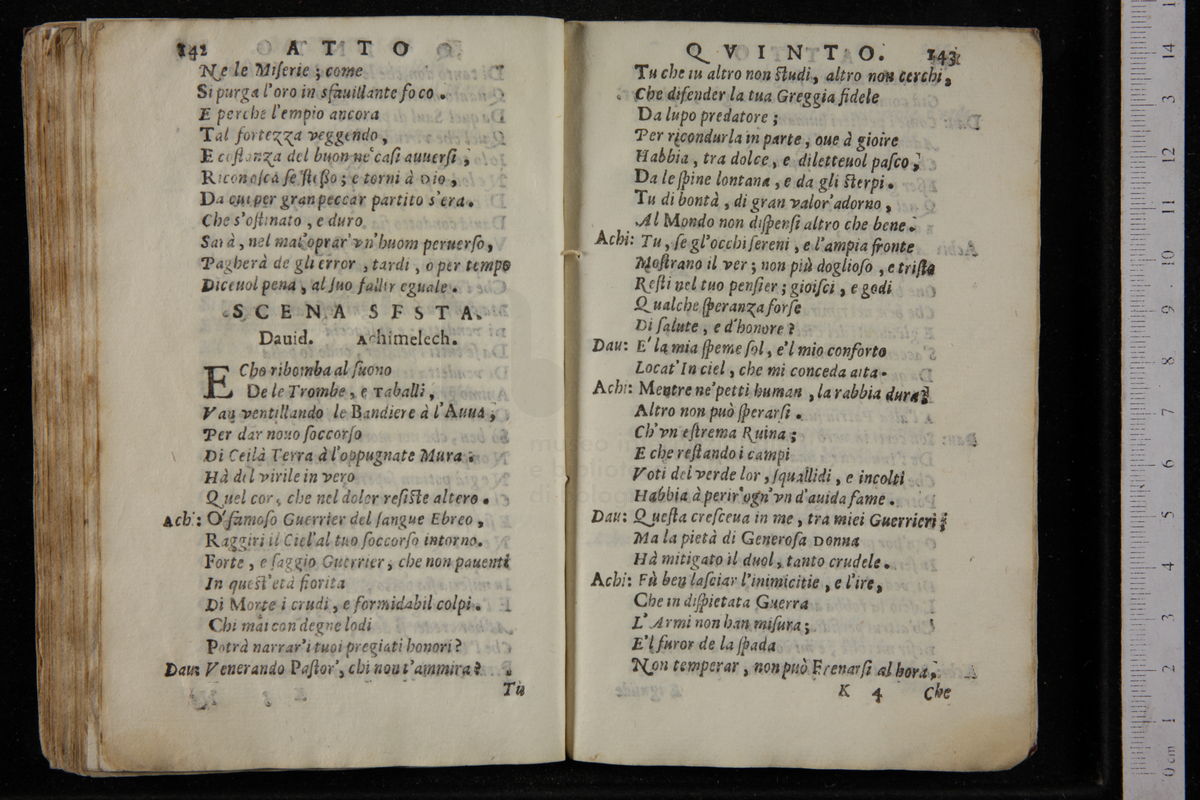 142 ATTO
Ne le Miſerie ; come
Si purga l'oro in sfauillante foco .
E perche l'empio ancora
Tal fortezza veggendo ,
E coſtanza del buon ne' caſi auuerſi ,
Riconoſca ſe ſteßo ; e torni à Dio ,
Da cui per gran peccar partito s'era .
Che s'oſtinato , e duro
Sarà , nel mal'oprar vn'huom peruerſo ,
Pagherà de gli error , tardi , o per tempo
Diceuol pena , al ſuo fallir eguale .
SCENA SESTA.
Dauid. Achimelech.
ECho ribomba al ſuono
De le Trombe , e Taballi ,
Van ventillando le Bandiere à l'Aura ;
Per dar nouo ſoccorſo
Di Ceilà Terra à l'oppugnate Mura :
Hà del virile in vero
Quel cor , che nel dolor reſiſte altero .
Achi: O' famoſo Guerrier del ſangue Ebreo ,
Raggiri il Ciel'al tuo ſoccorſo intorno.
Forte , e ſaggio Guerrier , che non pauenti
In queſt'età fiorita
Di Morte i crudi , e formidabil colpi .
Chi mai con degne lodi
Potrà narrar'i tuoi pregiati honori ?
Dau: Venerando Paſtor', chi non t'ammira ?
Tù
QVINTO. 143
Tu che in altro non ſtudi , altro non cerchi ,
Che difender la tua Greggia fidele
Da lupo predatore ;
Per ricondurla in parte , oue à gioire
Habbia , tra dolce , e diletteuol paſco ,
Da le ſpine lontana , e da gli ſterpi .
Tu di bontà , di gran valor'adorno ,
Al Mondo non diſpenſi altro che bene .
Achi: Tu , ſe gl'occhi ſereni , e l'ampia fronte
Moſtrano il ver ; non più doglioſo , e triſto
Reſti nel tuo penſier ; gioiſci , e godi
Qualche ſperanza forſe
Di ſalute , e d'honore ?
Dau: E' la mia ſpeme ſol , e'l mio conforto
Locat'In ciel , che mi conceda aita .
Achi: Mentre ne' petti human , la rabbia dura ,
Altro non può ſperarſi .
Ch'vn eſtrema Ruina ;
E che reſtando i campi
Voti del verde lor , ſquallidi , e incolti
Habbia à perir'ogn'vn d'auida fame .
Dau: Queſta creſceua in me , tra miei Guerrieri ;
Ma la pietà di Generoſa Donna
Hà mitigato il duol , tanto crudele .
Achi: Fù ben laſciar l'inimicitie , e l'ire ,
Che in diſpietata Guerra
L'Armi non han miſura ;
E'l furor de la ſpada
Non temperar , non può Frenarſi al hora ,
K 4 Che